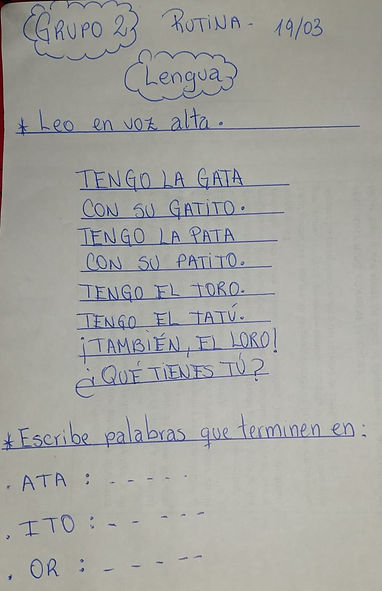 GRUPO 2 RUTINA - 19/03
Lengua
* Leo en voz alta.
TENGO LA GATA
CON SU GATITO.
TENGO LA PATA
CON SU PATITO.
TENGO EL TORO.
TENGO EL TATÚ.
¡TAMBIÉN, EL LORO!
¿QUÉ TIENES TÚ?
* Escribe palabras que terminen en:
. ATA : - - - - -
. ITO : - - - - -
. OR : - - - - -